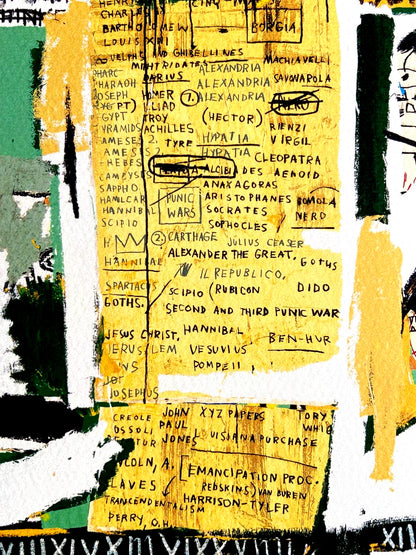 HENRY CINQ-M
CHARL
BARTHOLOMEW BORGIA
LOUIS XVI
GUELPHS AND GHIBELLINES MACHIAVELLI
MITHRIDATES
HARC DARIUS ALEXANDRIA SAVONAROLA
HARAOH ALEXANDRIA
OSEPH HOMER 1. ALEXANDRIA NERO
GYPT) ILLIAD
GYPT TROY (HECTOR) RIENZI
YRAMIDS ACHILLES VIRGIL
AMESES 2. HYPATIA
AMES TYRE HYPATIA
HEBES CLEOPATRA
CAMBYSES ALCIBIADES AENOID
SAPPHO ANAXAGORAS
HAMILCAR PUNIC WARS ARISTOPHANES ROMOLA
HANNIBAL SOCRATES NERO
SCIPIO SOPHOCLES
H 2. CARTHAGE JULIUS CEASER
HANNIBAL ALEXANDER THE GREAT, GOTHS
IL REPUBLICO,
SPARTACUS SCIPIO (RUBICON DIDO
GOTHS. SECOND AND THIRD PUNIC WAR
JESUS CHRIST, HANNIBAL BEN-HUR
JERUSALEM VESUVIUS
NS POMPEII
JOSEPHUS
CREOLE JOHN XYZ PAPERS TORY
OSSOLI PAUL WHIG
TOR JONES LOUISIANA PURCHASE
LINCOLN, A. [EMANCIPATION PROC.
LAVES REDSKINS) VAN BUREN
TRANCENDENTALISM HARRISON-TYLER
PERRY, O.H.